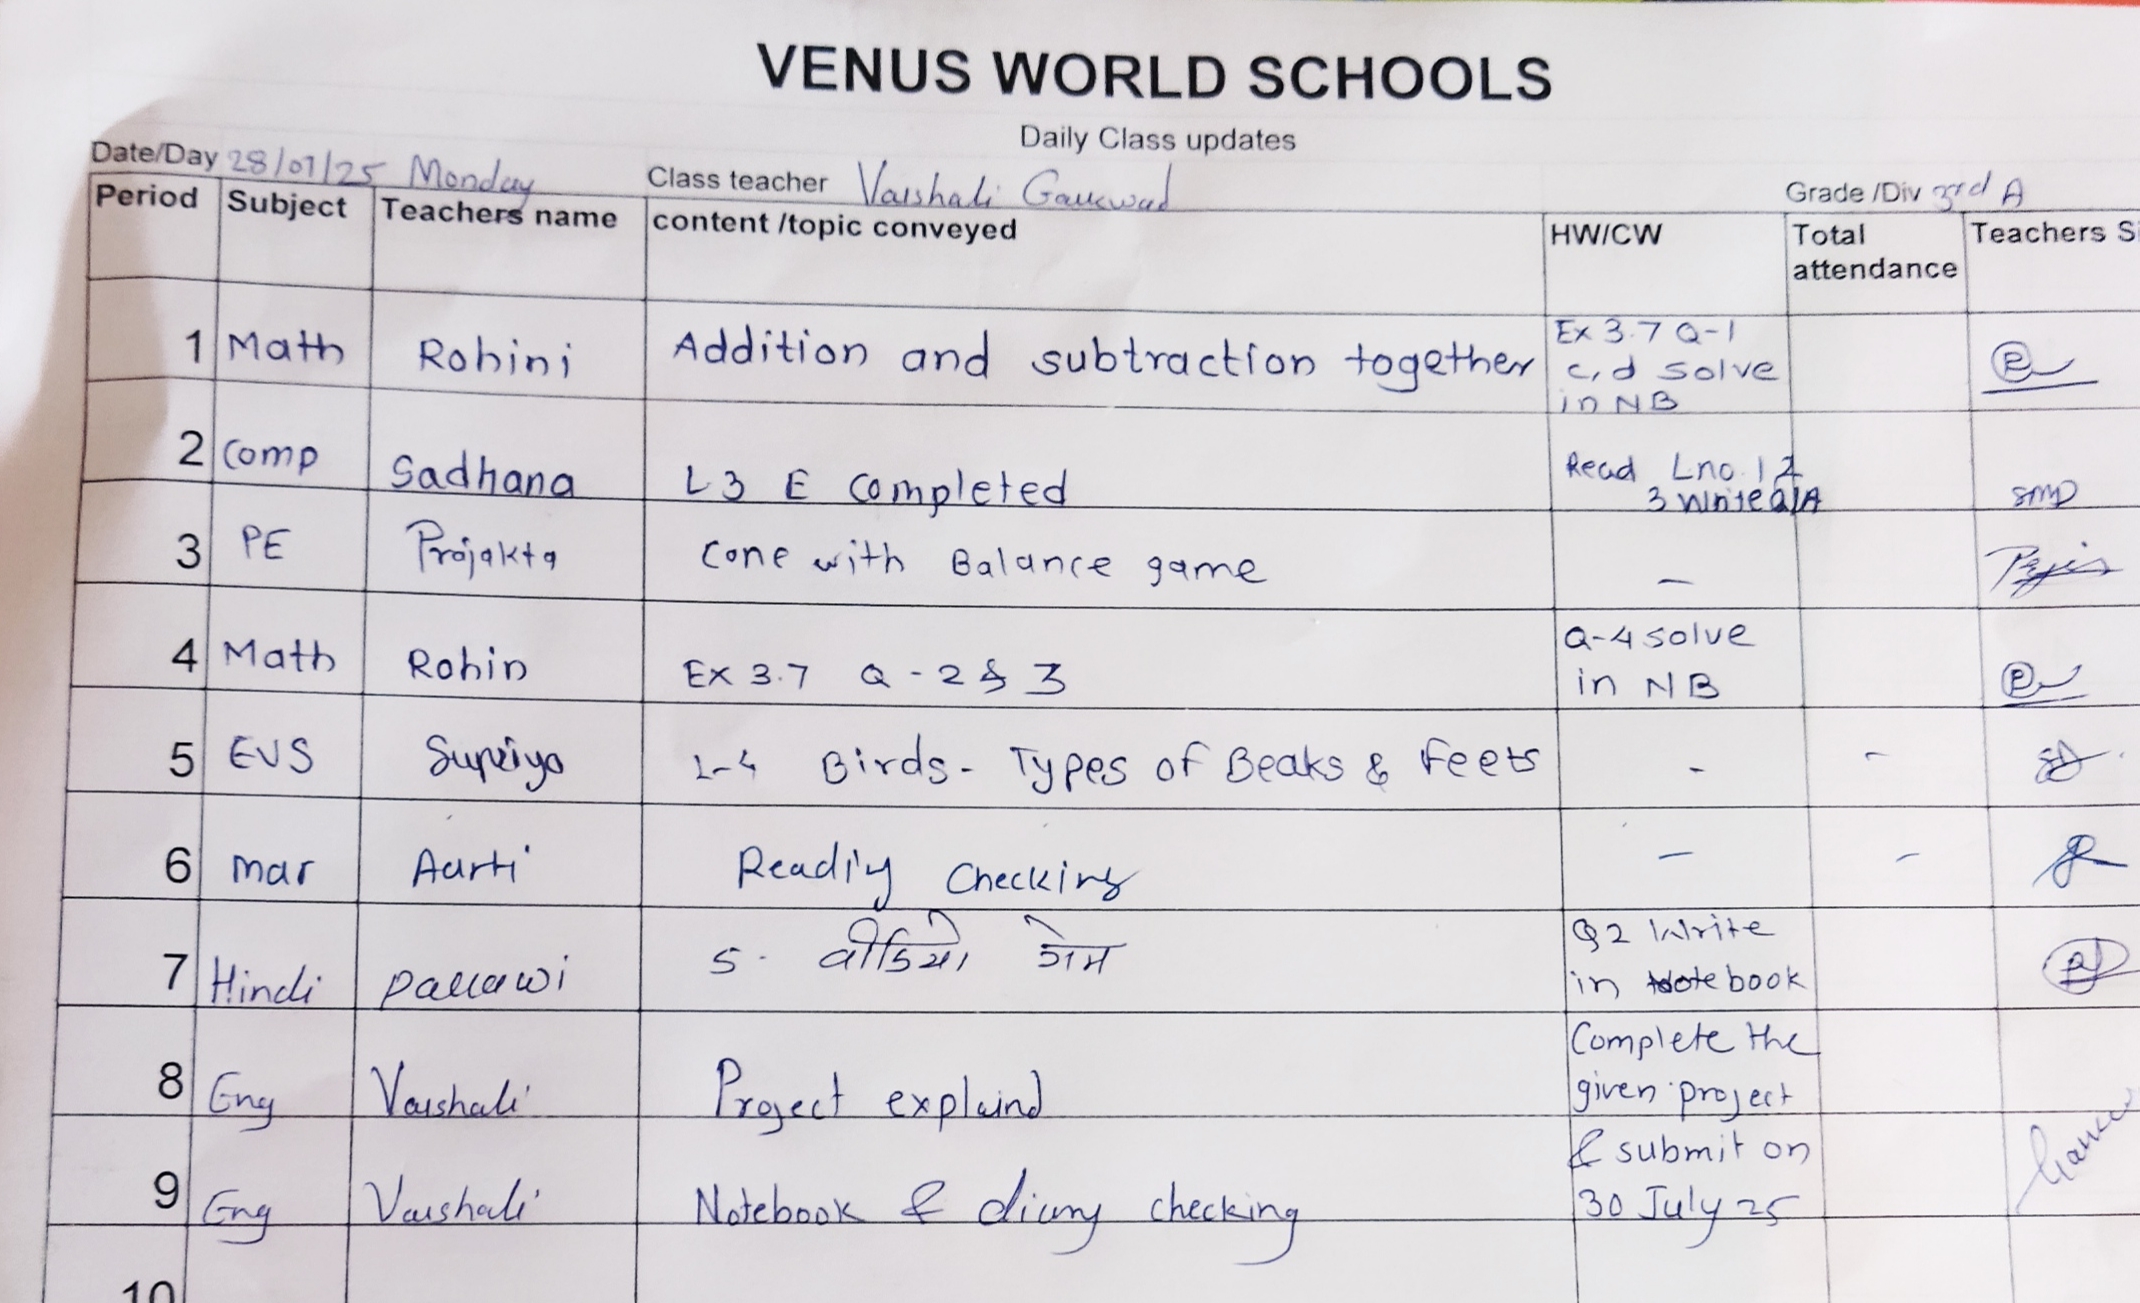 VENUS WORLD SCHOOLS
Daily Class updates
Date/Day 28/07/25 Monday Class teacher Vaishali Gaikwad Grade /Div 3rd A
Period Subject Teachers name content /topic conveyed HW/CW Total attendance Teachers
1 Math Rohini Addition and subtraction together Ex 3.7 Q-1
c,d solve
in NB
2 Comp Sadhana L3 E completed Read Lno. 1 2
3 Write Q/A
3 PE Prajakta Cone with Balance game -
4 Math Rohin Ex 3.7 Q - 2 & 3 Q-4 solve
in NB
5 EVS Supriya L-4 Birds - Types of Beaks & Feets - -
6 Mar Aarti Reading Checking - -
7 Hindi Pallawi 5. वीडियो गेम Q2 Write
in Notebook
8 Eng Vaishali Project explaind Complete the
given project
9 Eng Vaishali Notebook & diary checking & submit on
30 July 25
10